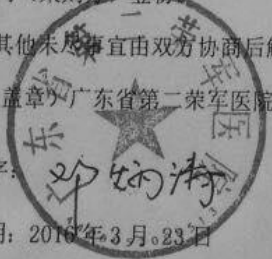 其他未尽事宜由双方协商后解
盖章）广东省第二荣军医院
广东省第二荣军医院
字：
邓炳涛
期：2016年3月23日